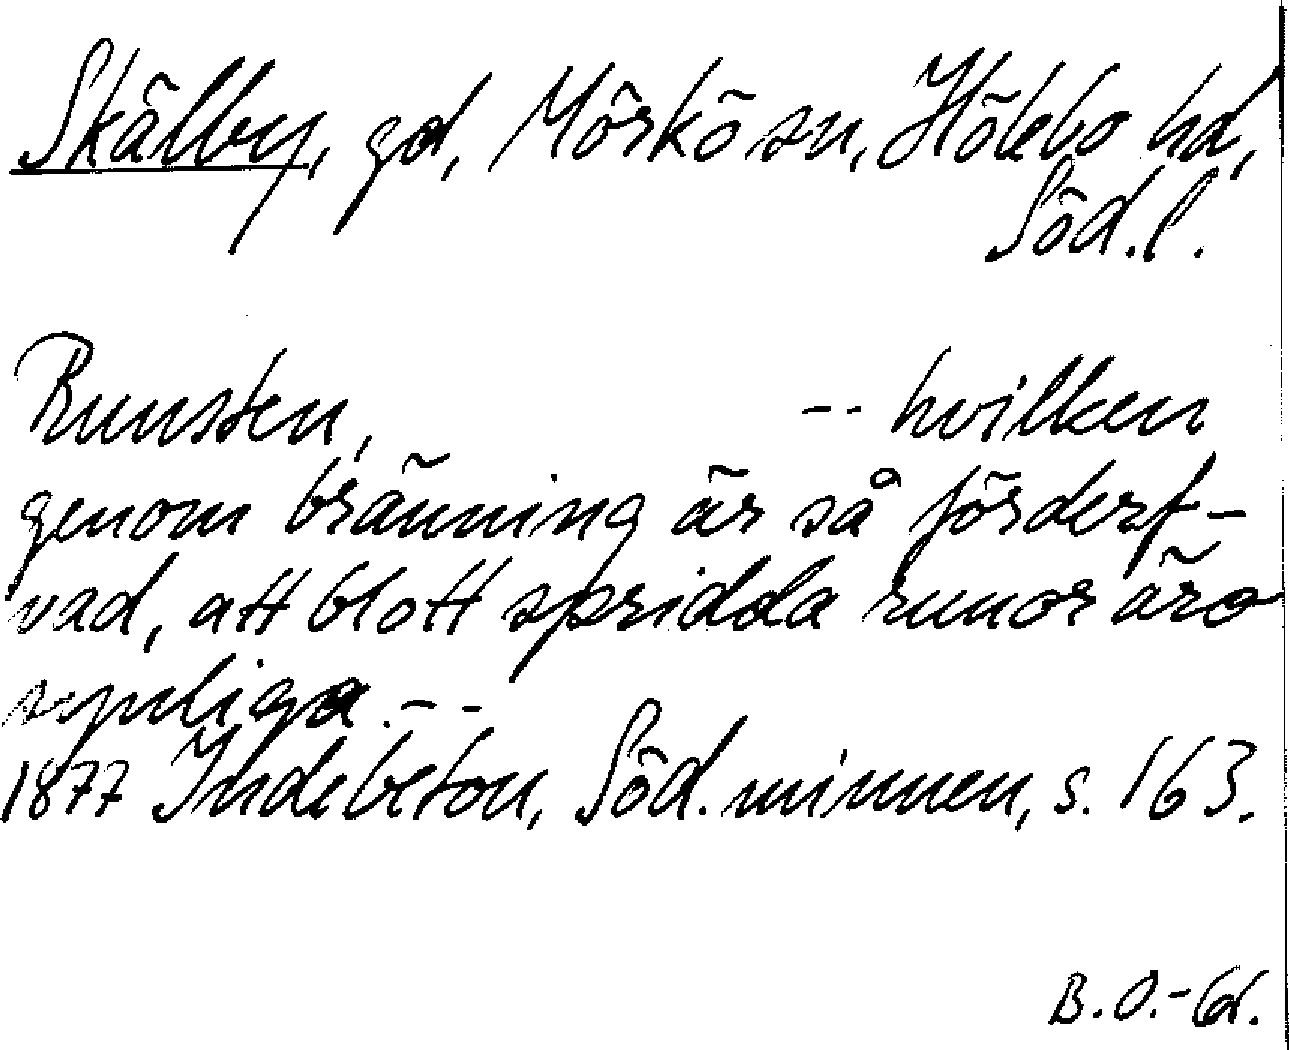 Skälby, gd, Mörkö sn, Hölebo hd,
Söd.l.
Runsten, -- hvilken
genom bränning är så förderf-
vad, att blott spridda runor äro
synliga. --
1877 Indebetou, Söd. minnen, s. 163.
B.O.-61.